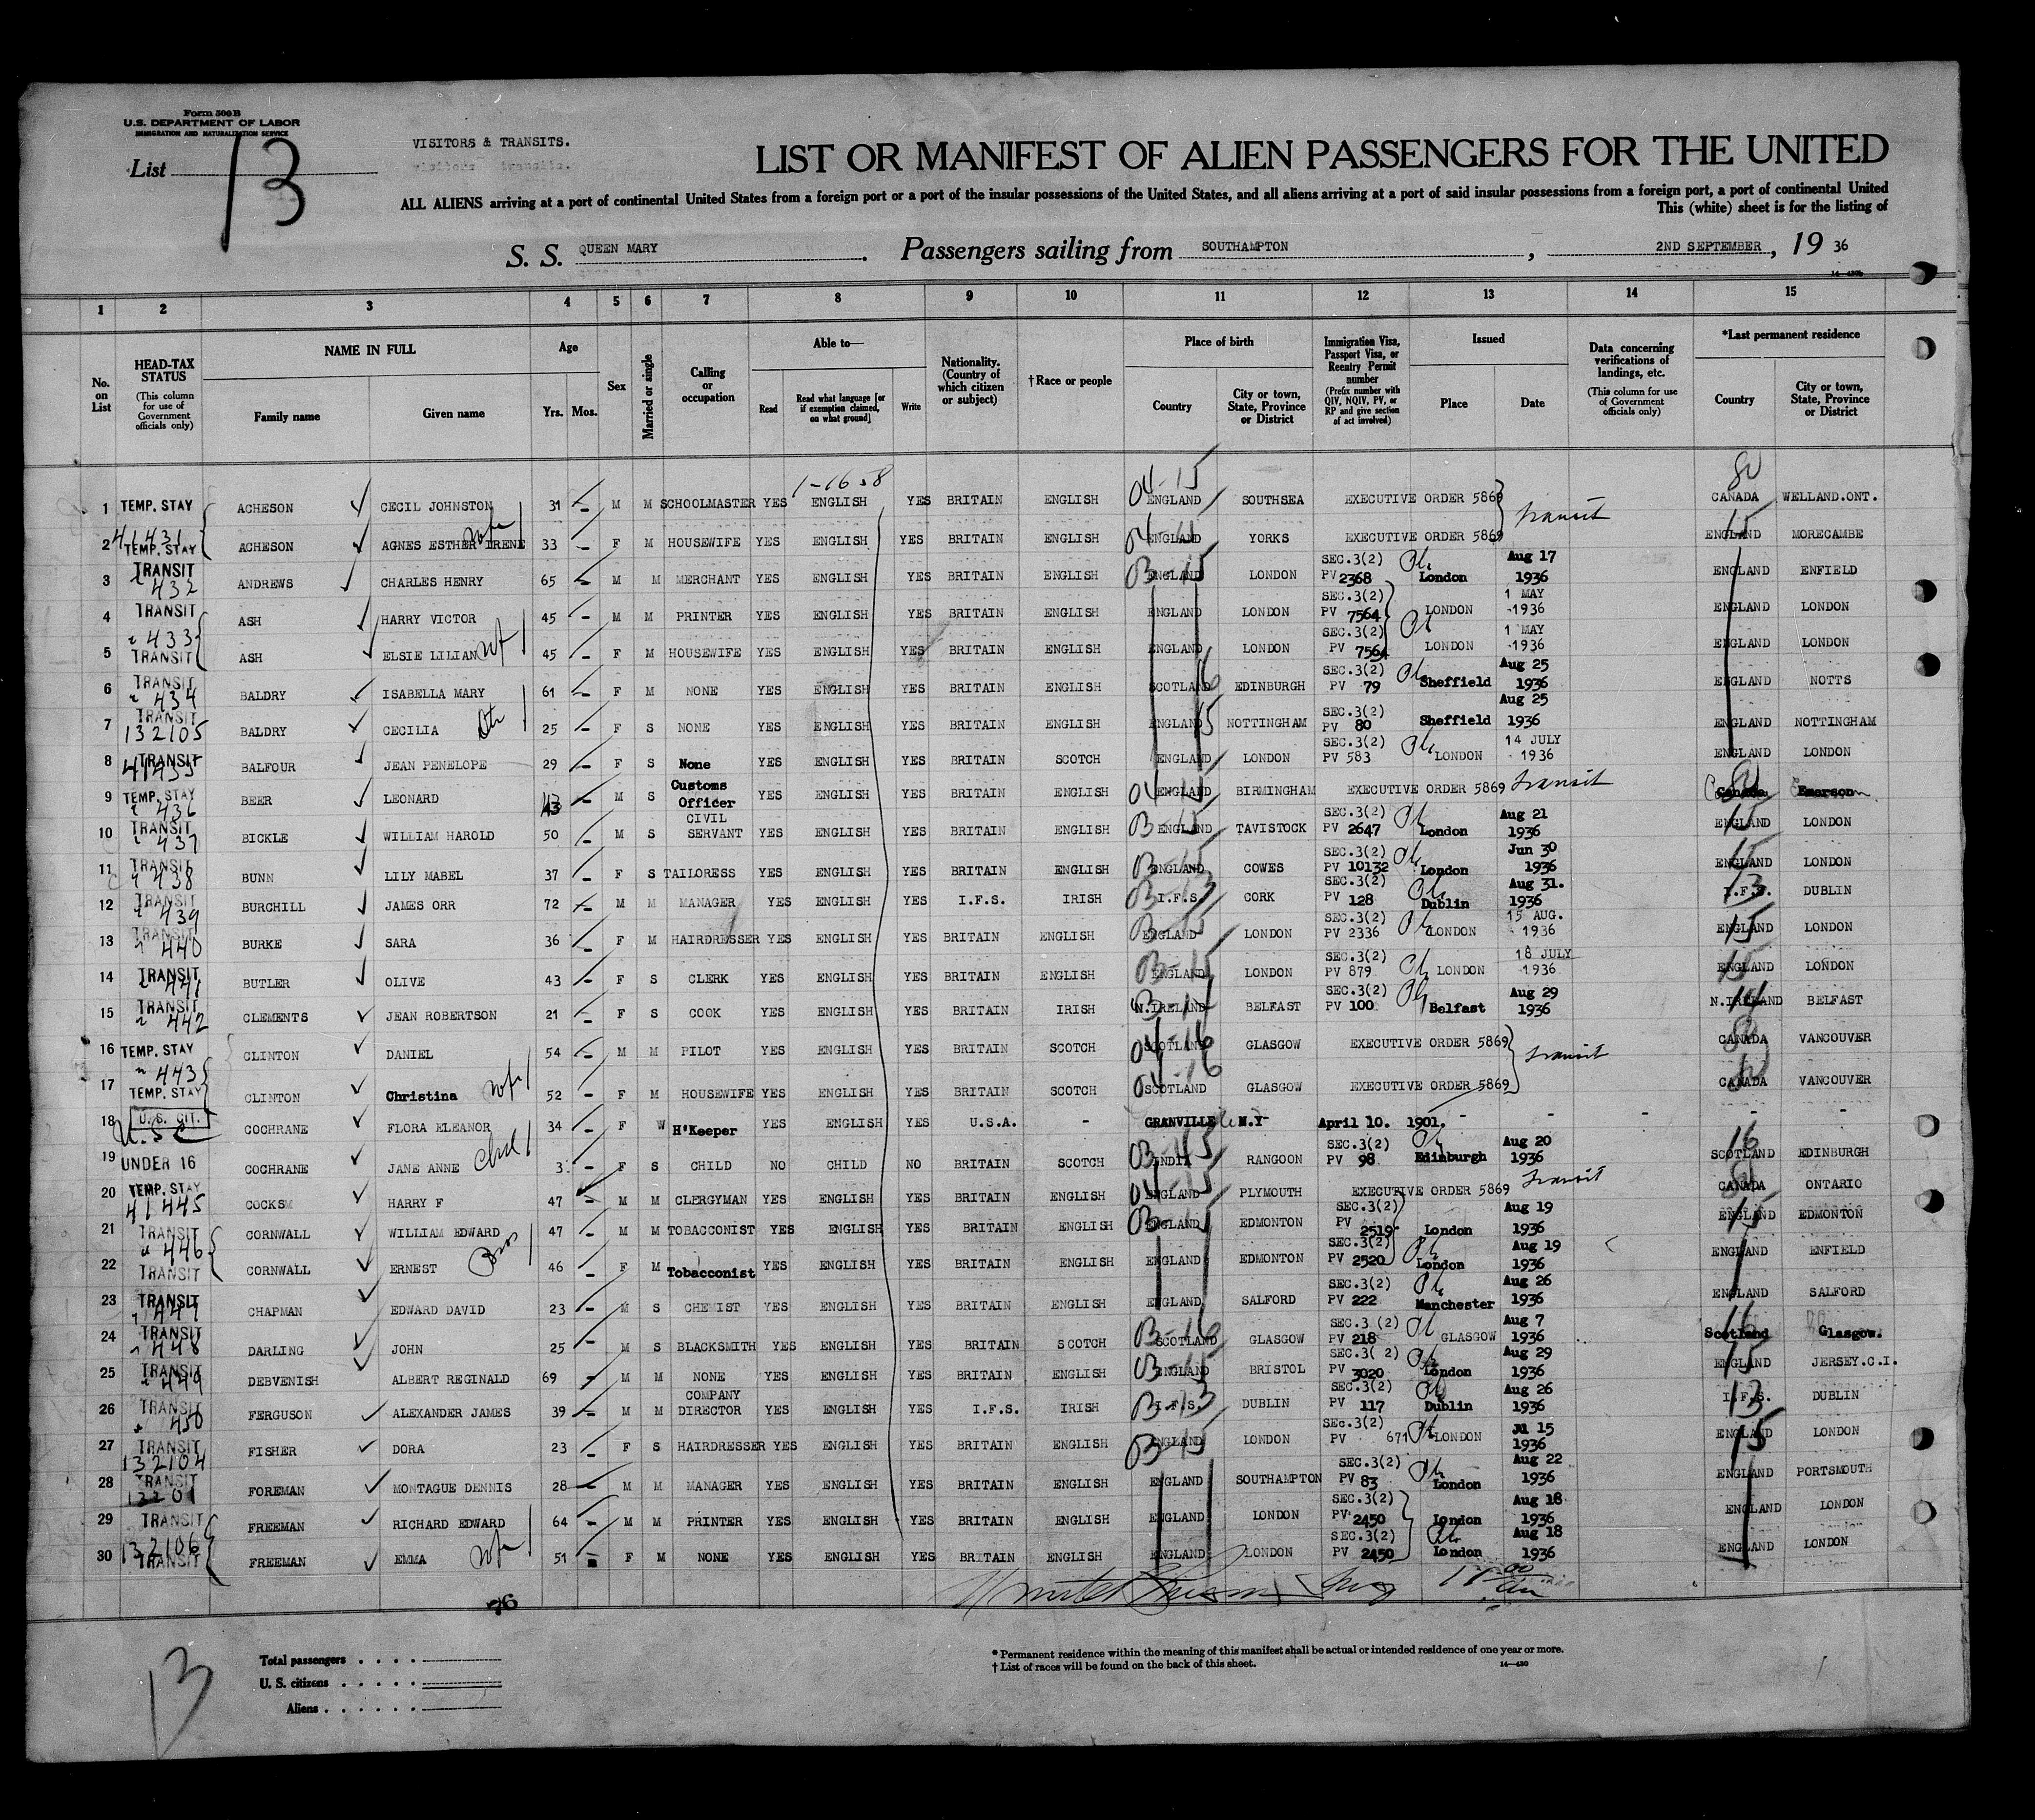 Form 500 B
U.S. DEPARTMENT OF LABOR
IMMIGRATION AND NATURALIZATION SERVICE
List 13
VISITORS & TRANSITS.
LIST OR MANIFEST OF ALIEN PASSENGERS FOR THE UNITED
ALL ALIENS arriving at a port of continental United States from a foreign port or a port of the insular possessions of the United States, and all aliens arriving at a port of said insular possessions from a foreign port, a port of continental United
This (white) sheet is for the listing of
S. S. QUEEN MARY . Passengers sailing from SOUTHAMPTON , 2ND SEPTEMBER , 19 36
1 2 3 4 5 6 7 8 9 10 11 12 13 14 15
No. on List
HEAD-TAX STATUS (This column for use of Government officials only)
NAME IN FULL Family name Given name
Age Yrs. Mos.
Sex
Married or single
Calling or occupation
Able to— Read Read what language [or if exemption claimed, on what ground] Write
Nationality. (Country of which citizen or subject)
†Race or people
Place of birth Country City or town, State, Province or District
Immigration Visa, Passport Visa, or Reentry Permit number (Prefix number with QIV, NQIV, PV, or RP and give section of act involved)
Issued Place Date
Data concerning verifications of landings, etc. (This column for use of Government officials only)
*Last permanent residence Country City or town, State, Province or District
1-1658
1 TEMP. STAY ACHESON CECIL JOHNSTON 31 M M SCHOOLMASTER YES ENGLISH YES BRITAIN ENGLISH 04-15 ENGLAND SOUTHSEA EXECUTIVE ORDER 5869 transit 80 CANADA WELLAND.ONT.
2 41431 TEMP. STAY ACHESON AGNES ESTHER IRENE wfe 33 F M HOUSEWIFE YES ENGLISH YES BRITAIN ENGLISH 04-15 ENGLAND YORKS EXECUTIVE ORDER 5869 15 ENGLAND MORECAMBE
3 TRANSIT 432 ANDREWS CHARLES HENRY 65 M M MERCHANT YES ENGLISH YES BRITAIN ENGLISH 03-15 ENGLAND LONDON SEC.3(2) PV 2368 London Aug 17 1936 ENGLAND ENFIELD
4 TRANSIT 433 ASH HARRY VICTOR 45 M M PRINTER YES ENGLISH YES BRITAIN ENGLISH ENGLAND LONDON SEC.3(2) PV 7564 LONDON 1 MAY 1936 ENGLAND LONDON
5 TRANSIT ASH ELSIE LILIAN wf 45 F M HOUSEWIFE YES ENGLISH YES BRITAIN ENGLISH ENGLAND LONDON SEC.3(2) PV 7564 LONDON 1 MAY 1936 ENGLAND LONDON
6 TRANSIT 434 BALDRY ISABELLA MARY 61 F M NONE YES ENGLISH YES BRITAIN ENGLISH SCOTLAND 16 EDINBURGH SEC.3(2) PV 79 Sheffield Aug 25 1936 ENGLAND NOTTS
7 TRANSIT 132105 BALDRY CECILIA Dtr 25 F S NONE YES ENGLISH YES BRITAIN ENGLISH ENGLAND 15 NOTTINGHAM SEC.3(2) PV 80 Sheffield Aug 25 1936 ENGLAND NOTTINGHAM
8 TRANSIT 41435 BALFOUR JEAN PENELOPE 29 F S None YES ENGLISH YES BRITAIN SCOTCH ENGLAND LONDON SEC.3(2) PV 583 LONDON 14 JULY 1936 ENGLAND LONDON
9 TEMP. STAY 436 BEER LEONARD 43 M S Customs Officer YES ENGLISH YES BRITAIN ENGLISH 04 ENGLAND 15 BIRMINGHAM EXECUTIVE ORDER 5869 transit Canada Emerson
10 TRANSIT 437 BICKLE WILLIAM HAROLD 50 M S CIVIL SERVANT YES ENGLISH YES BRITAIN ENGLISH 03-15 ENGLAND TAVISTOCK SEC.3(2) PV 2647 London Aug 21 1936 ENGLAND LONDON
11 TRANSIT 438 BUNN LILY MABEL 37 F S TAILORESS YES ENGLISH YES BRITAIN ENGLISH 03-15 ENGLAND COWES SEC.3(2) PV 10132 London Jun 30 1936 15 ENGLAND LONDON
12 TRANSIT 439 BURCHILL JAMES ORR 72 M M MANAGER YES ENGLISH YES I.F.S. IRISH 03-13 I.F.S. CORK SEC.3(2) PV 128 Dublin Aug 31. 1936 13 I.F.S. DUBLIN
13 TRANSIT 440 BURKE SARA 36 F M HAIRDRESSER YES ENGLISH YES BRITAIN ENGLISH 03-15 ENGLAND LONDON SEC.3(2) PV 2336 LONDON 15 AUG. 1936 15 ENGLAND LONDON
14 TRANSIT 441 BUTLER OLIVE 43 F S CLERK YES ENGLISH YES BRITAIN ENGLISH 03-15 ENGLAND LONDON SEC.3(2) PV 879 LONDON 18 JULY 1936 15 ENGLAND LONDON
15 TRANSIT 442 CLEMENTS JEAN ROBERTSON 21 F S COOK YES ENGLISH YES BRITAIN IRISH 03-14 N.IRELAND BELFAST SEC.3(2) PV 100 Belfast Aug 29 1936 14 N.IRELAND BELFAST
16 TEMP. STAY 443 CLINTON DANIEL 54 M M PILOT YES ENGLISH YES BRITAIN SCOTCH 04-16 SCOTLAND GLASGOW EXECUTIVE ORDER 5869 transit 80 CANADA VANCOUVER
17 TEMP. STAY CLINTON Christina wfe 52 F M HOUSEWIFE YES ENGLISH YES BRITAIN SCOTCH 04-16 SCOTLAND GLASGOW EXECUTIVE ORDER 5869 80 CANADA VANCOUVER
18 U. S. CIT. U.S.C COCHRANE FLORA ELEANOR 34 F W H'Keeper YES ENGLISH YES U.S.A. - GRANVILLE N.Y- April 10. 1901. - - - - -
19 UNDER 16 COCHRANE JANE ANNE Child 3. F S CHILD NO CHILD NO BRITAIN SCOTCH 03-45 INDIA RANGOON SEC.3(2) PV 98 Edinburgh Aug 20 1936 16 SCOTLAND EDINBURGH
20 TEMP. STAY 41445 COCKSM HARRY F 47 M M CLERGYMAN YES ENGLISH YES BRITAIN ENGLISH 04-15 ENGLAND PLYMOUTH EXECUTIVE ORDER 5869 transit 80 CANADA ONTARIO
21 TRANSIT 446 CORNWALL WILLIAM EDWARD 47 M M TOBACCONIST YES ENGLISH YES BRITAIN ENGLISH 03-15 ENGLAND EDMONTON SEC.3(2) PV 2519 London Aug 19 1936 15 ENGLAND EDMONTON
22 TRANSIT CORNWALL ERNEST Bros 46 F M Tobacconist YES ENGLISH YES BRITAIN ENGLISH ENGLAND EDMONTON SEC.3(2) PV 2520 London Aug 19 1936 ENGLAND ENFIELD
23 TRANSIT 447 CHAPMAN EDWARD DAVID 23 M S CHEMIST YES ENGLISH YES BRITAIN ENGLISH ENGLAND SALFORD SEC.3(2) PV 222 Manchester Aug 26 1936 ENGLAND SALFORD
24 TRANSIT 448 DARLING JOHN 25 M S BLACKSMITH YES ENGLISH YES BRITAIN SCOTCH 03-16 SCOTLAND GLASGOW SEC.3 (2) PV 218 GLASGOW Aug 7 1936 16 Scotland Glasgow.
25 TRANSIT 449 DEBVENISH ALBERT REGINALD 69 M M NONE YES ENGLISH YES BRITAIN ENGLISH 03-15 ENGLAND BRISTOL SEC.3( 2) PV 3020 London Aug 29 1936 15 ENGLAND JERSEY.C.I.
26 TRANSIT 450 FERGUSON ALEXANDER JAMES 39 M M COMPANY DIRECTOR YES ENGLISH YES I.F.S. IRISH 03-13 I.F.S. DUBLIN SEC.3(2) PV 117 Dublin Aug 26 1936 13 I.F.S. DUBLIN
27 TRANSIT 132104 FISHER DORA 23 F S HAIRDRESSER YES ENGLISH YES BRITAIN ENGLISH 03-15 ENGLAND LONDON SEC.3(2) PV 671 LONDON Jl 15 1936 15 ENGLAND LONDON
28 TRANSIT FOREMAN MONTAGUE DENNIS 28 M M MANAGER YES ENGLISH YES BRITAIN ENGLISH ENGLAND SOUTHAMPTON SEC.3(2) PV 83 London Aug 22 1936 ENGLAND PORTSMOUTH
29 TRANSIT FREEMAN RICHARD EDWARD 64 M M PRINTER YES ENGLISH YES BRITAIN ENGLISH ENGLAND LONDON SEC.3(2) PV 2450 London Aug 18 1936 ENGLAND LONDON
30 132106 TRANSIT FREEMAN EMMA wfe 51 F M NONE YES ENGLISH YES BRITAIN ENGLISH ENGLAND LONDON SEC.3(2) PV 2450 London Aug 18 1936 ENGLAND LONDON
Total passengers
U. S. citizens
Aliens
13
* Permanent residence within the meaning of this manifest shall be actual or intended residence of one year or more.
† List of races will be found on the back of this sheet.
14—430